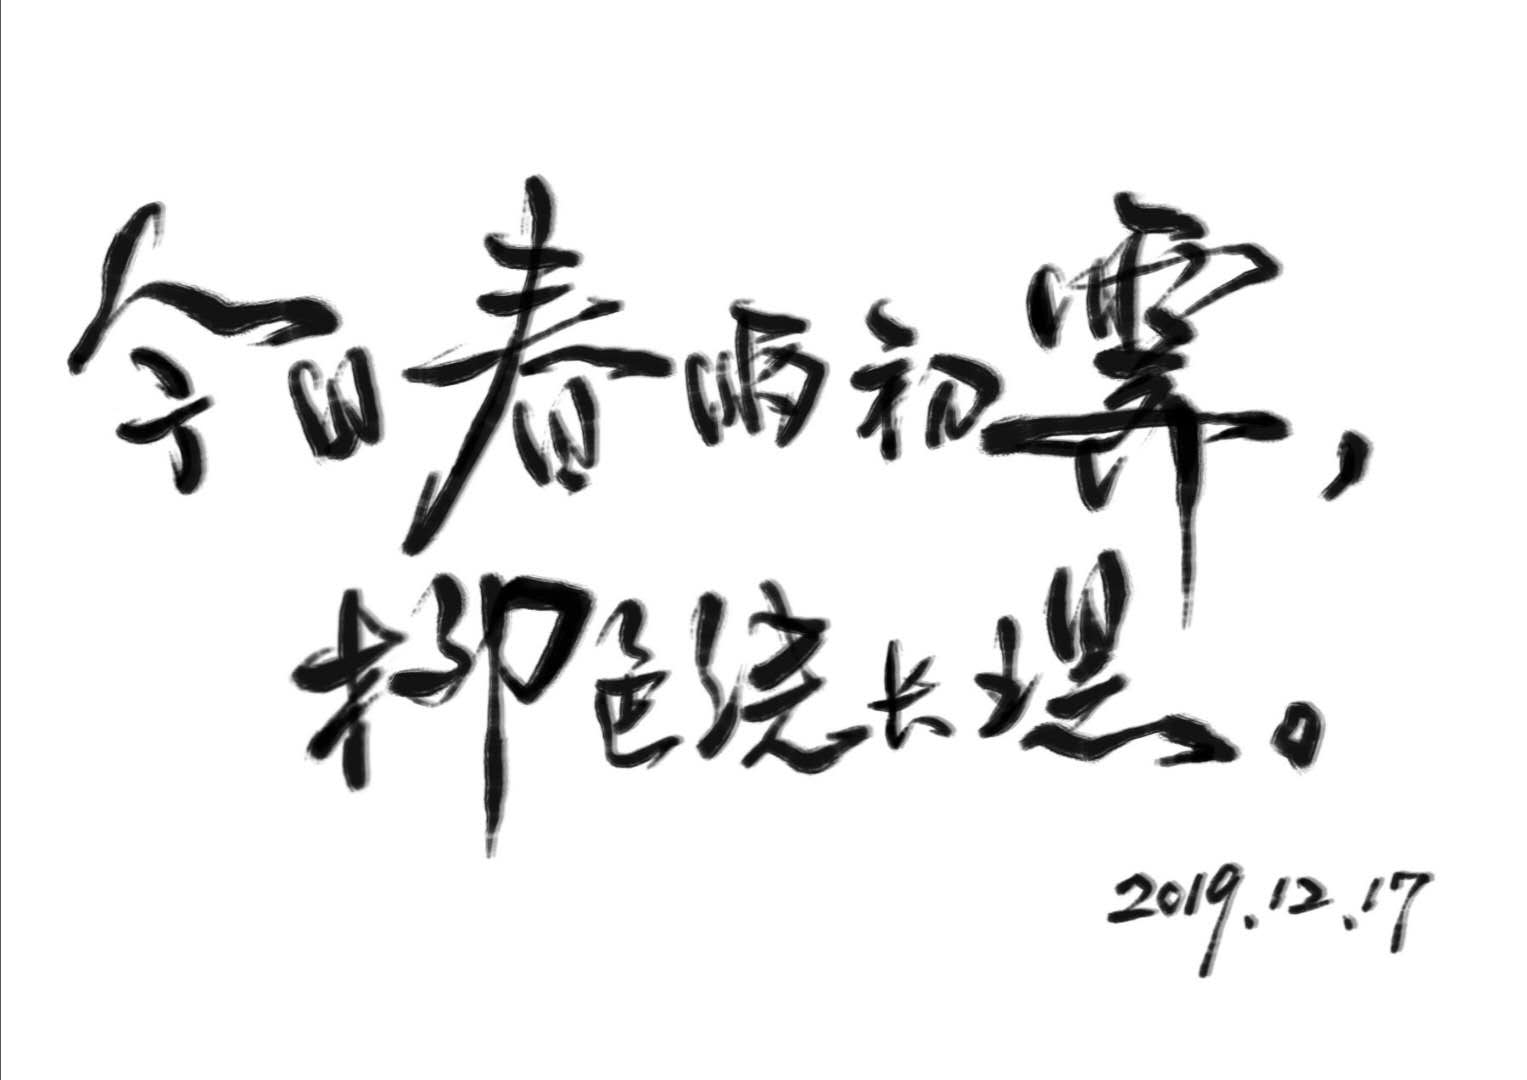 今日春雨初霁，
柳色绕长堤。
2019.12.17